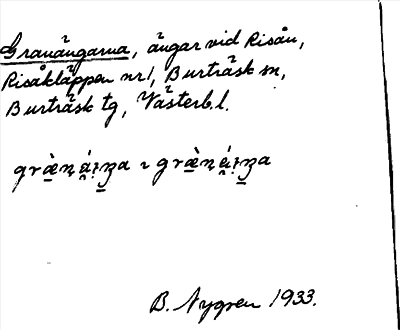 Granängarna, ängar vid Risån,
Risåkläppen nr 1, Burträsk sn,
Burträsk tg, Västerb. l.
B. Nygren 1933.